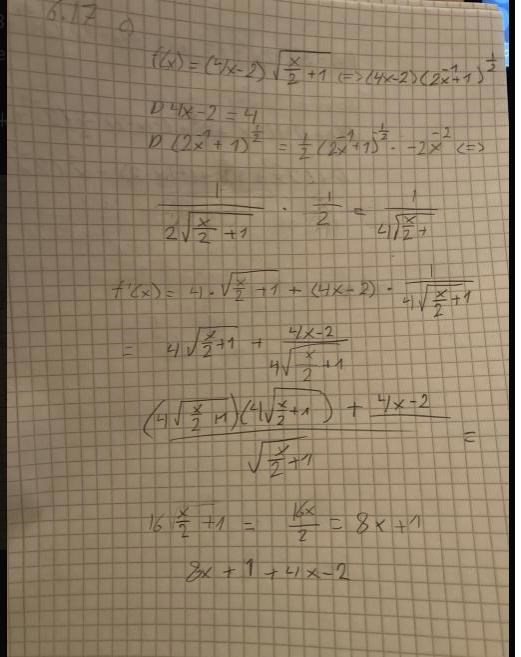 6.17 a)
f(x) = (4x-2) √(x/2 + 1) <=> (4x-2) (2x^-1 + 1)^1/2
D 4x-2 = 4
D (2x^-1 + 1)^1/2 = 1/2 (2x^-1 + 1)^-1/2 · -2x^-2 <=>
1/(2√(x/2 + 1)) · 1/2 = 1/(4√(x/2 +
f'(x) = 4 · √(x/2 + 1) + (4x-2) · 1/(4√(x/2 + 1))
= 4√(x/2 + 1) + (4x-2)/(4√(x/2 + 1))
((4√(x/2 + 1)(4√(x/2 + 1)) + 4x-2)/√(x/2 + 1) =
16 x/2 + 1 = 16x/2 = 8x + 1
8x + 1 + 4x - 2